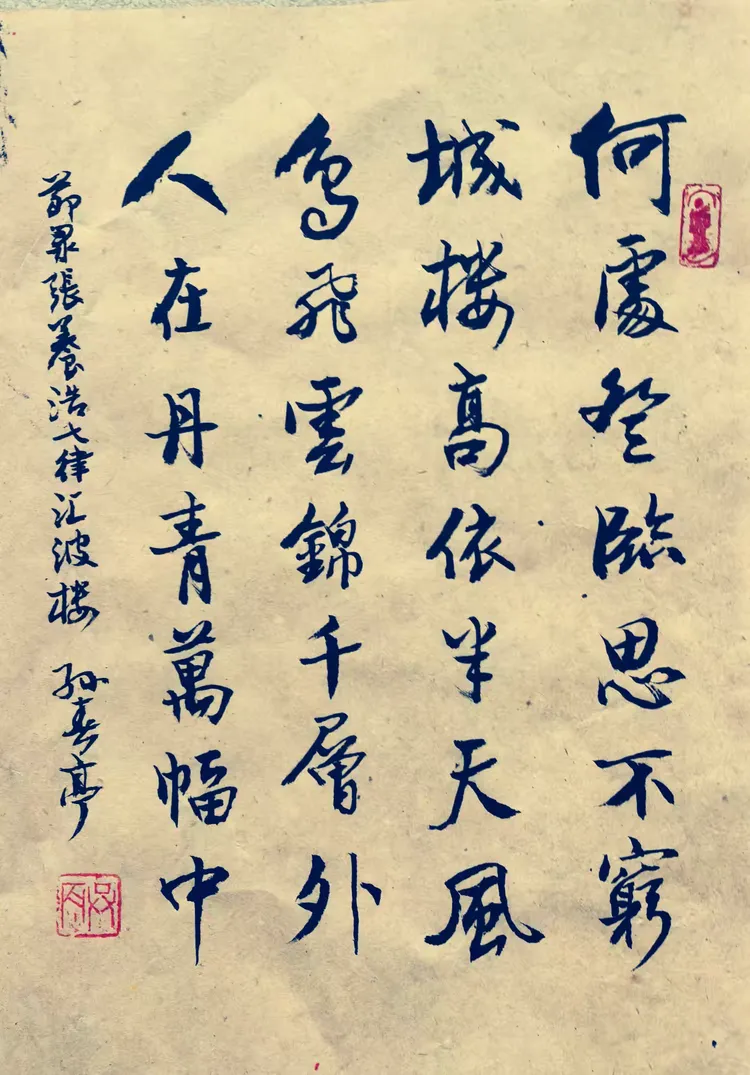 何處登臨思不窮
城楼高依半天風
鳥飛雲錦層千外
人在丹青萬幅中
節录張養浩七律汇波楼 孙春亭